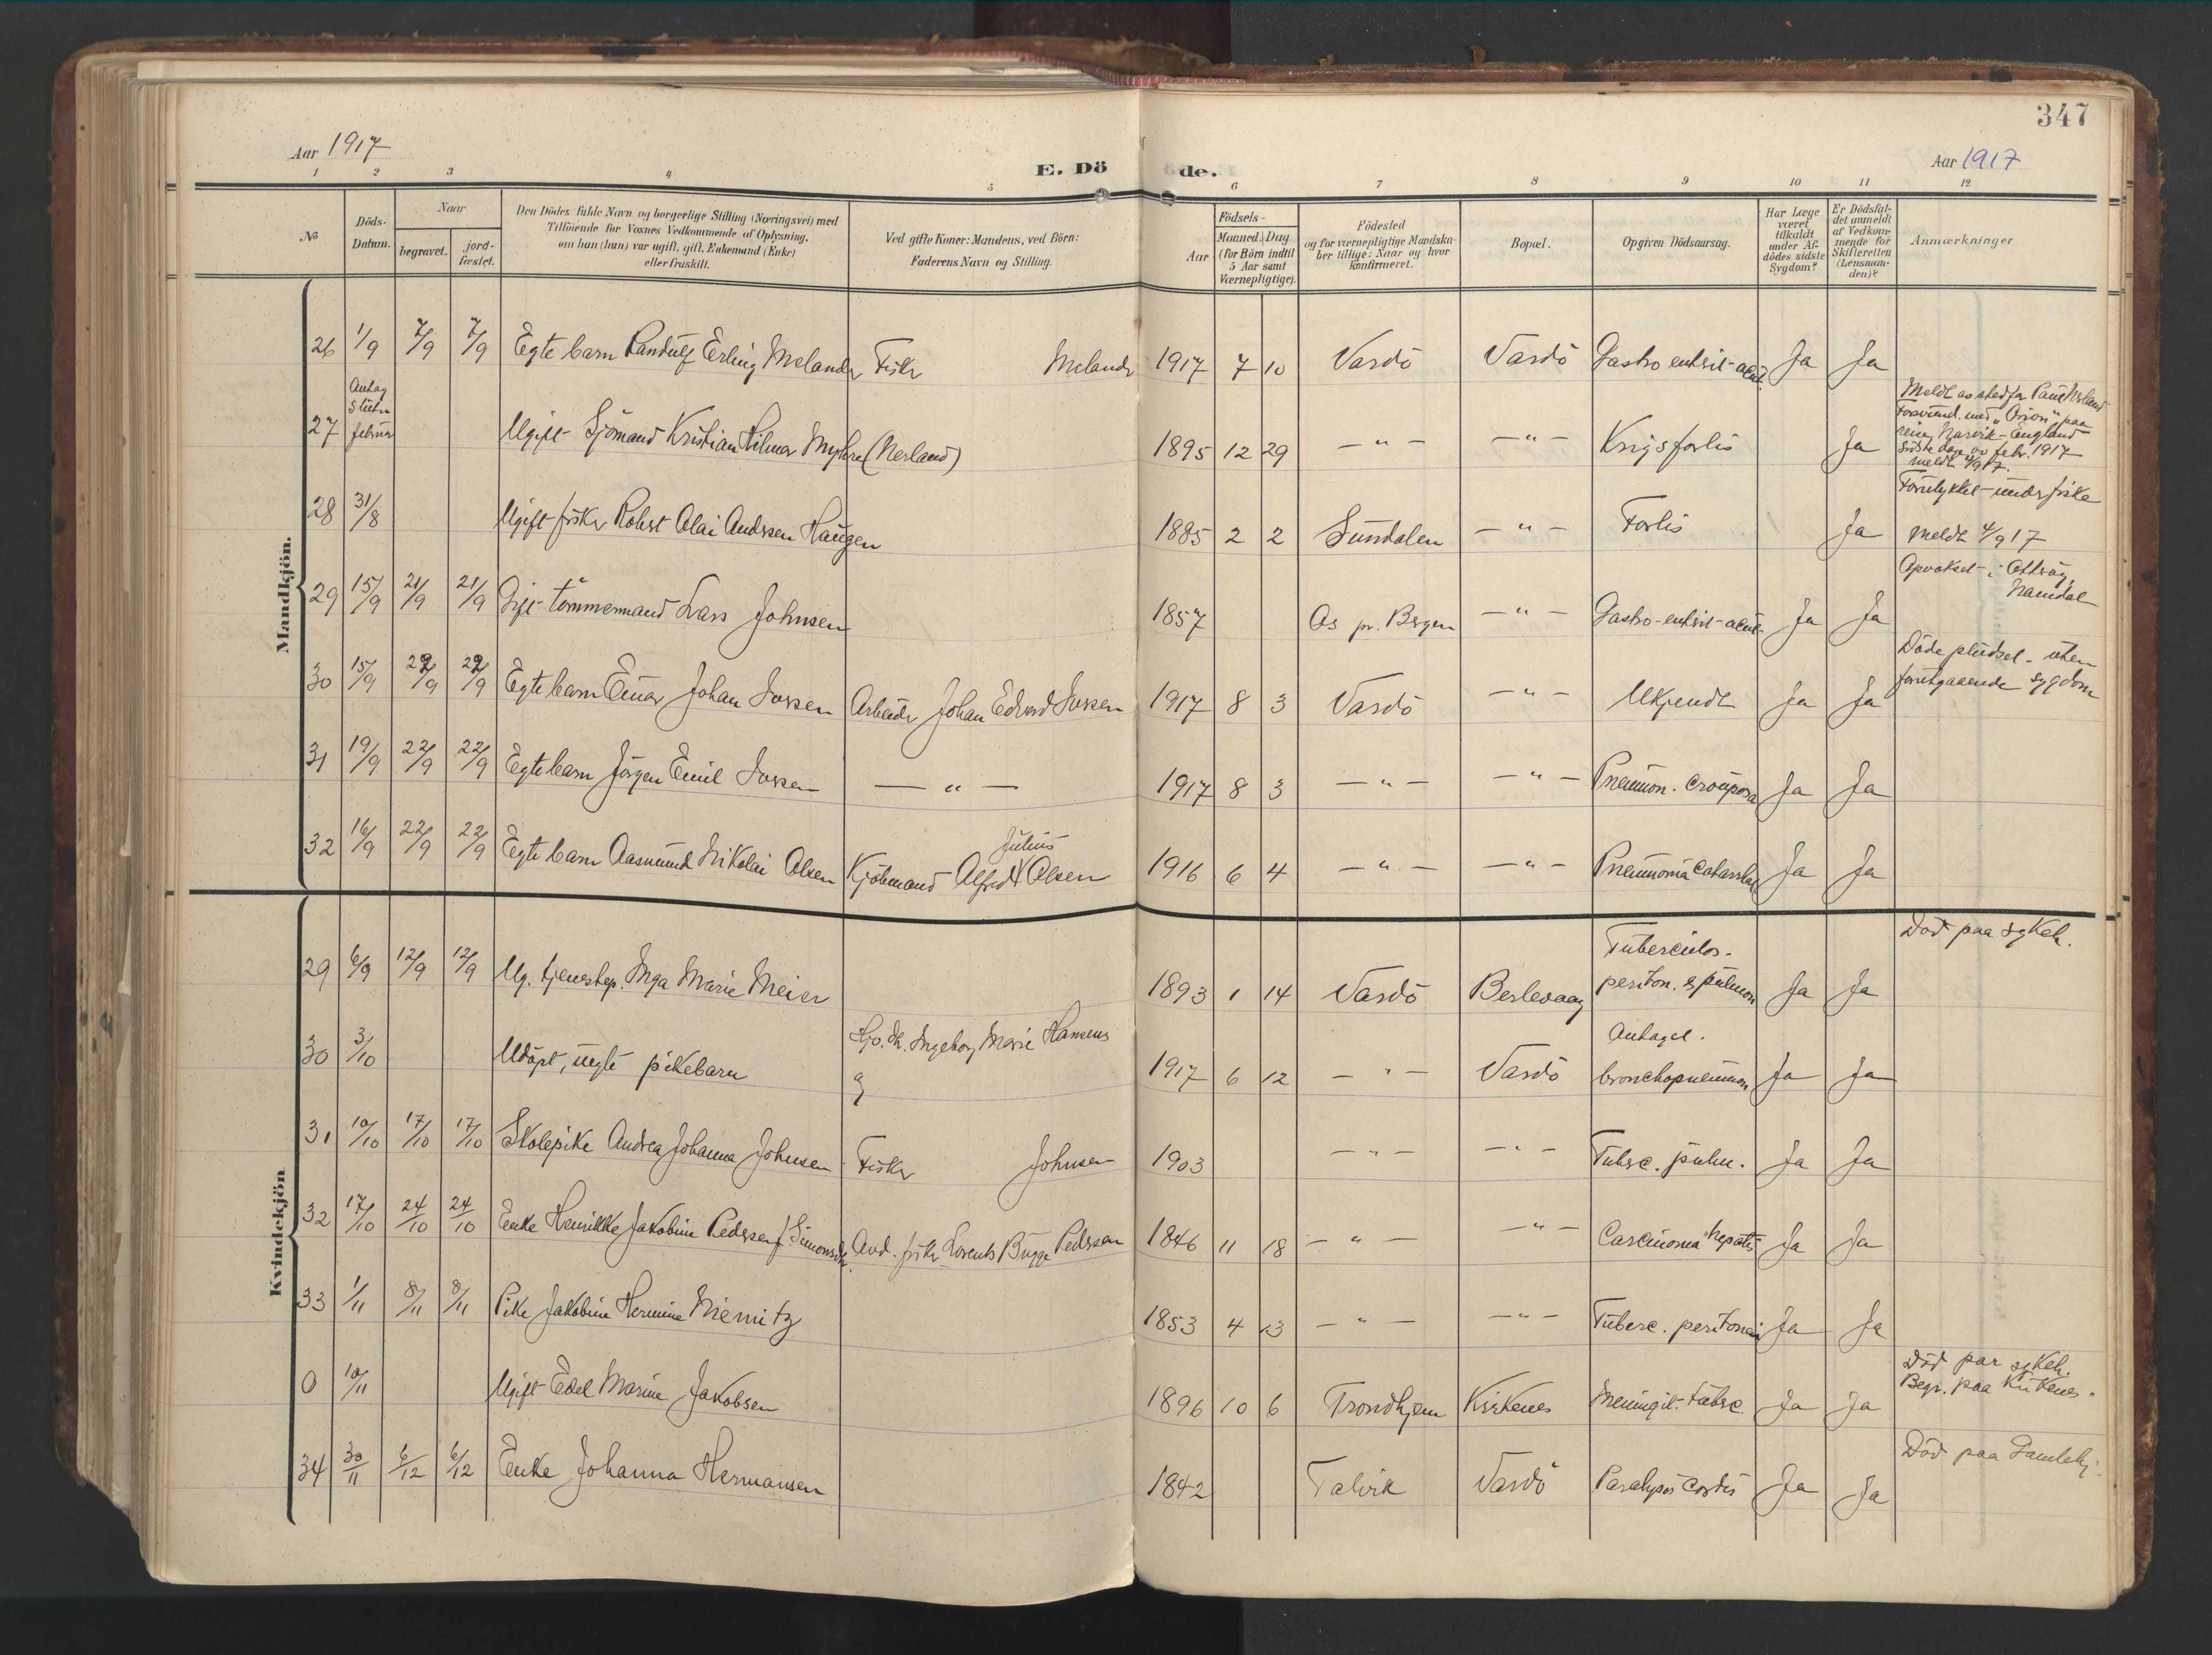 347
Aar 1917
E. Dö de.
Aar 1917
1 2 3 4 5 6 7 8 9 10 11 12
No
Döds-Datum.
Naar
begravet.
jord-fæstet.
Den Dödes fulde Navn og borgerlige Stilling (Næringsvei) med
Tilföiende for Voxnes Vedkommende af Oplysning,
om han (hun) var ugift, gift, Enkemand (Enke)
eller fraskilt.
Ved gifte Koner: Mandens, ved Börn:
Faderens Navn og Stilling.
Aar
Födsels-
Maaned. Dag
(for Börn indtil
5 Aar samt
Værnepligtige).
Födested
og for værnepligtige Mandska-
ber tillige: Naar og hvor
konfirmeret.
Bopæl.
Opgiven Dödsaarsag.
Har Læge
været
tilkaldt
under Af-
dödes sidste
Sygdom?
Er Dödsfal-
det anmeldt
af Vedkom-
mende for
Skifteretten
(Lensman-
den)?
Anmærkninger
Mandkjön.
26 1/9 7/9 7/9 Egte barn Randulf Erling Melander Fisker Melander 1917 7 10 Vardö Vardö Gastro enterit-acut. Ja Ja
27 Antag Slutn februar Ugift Sjömand Kristian Hilmar Myhre (Nerland) 1895 12 29 — " — — " — Krigsforlis Ja
Forsvund. med "Orion" paa
reise Narvik-England
sidste dage av febr. 1917
28 31/8 Ugift fisker Robert Olai Anderssen Haugen 1885 2 2 Sundalen — " — Forlis Ja
Forulykket under fiske
meldt 4/9 17
29 15/9 21/9 21/9 Gift tömmermand Lars Johnsen 1857 Os pr. Bergen — " — Gastro-enterit-acut- Ja Ja
Opvokset i
Namdal
30 15/9 22/9 22/9 Egte barn Einar Johan Iversen Arbeider Johan Edvard Iversen 1917 8 3 Vardö — " — Ukjendt Ja Ja
Döde pludsel. uten
forutgaaende sygdom
31 19/9 22/9 22/9 Egte barn Jörgen Emil Iversen — " — 1917 8 3 — " — — " — Pneumon. crouposa Ja Ja
32 16/9 22/9 22/9 Egte barn Aasmund Nikolai Olsen Kjöbmand Alfred Julius Olsen 1916 6 4 — " — — " — Pneumonia Catarrhal Ja Ja
Kvindekjön
29 6/9 12/9 12/9 Ug. tjenestep. Inga Marie Meier 1893 1 14 Vardö Berlevaag Tuberculos. periton. & pulmon Ja Ja
Död paa sykeh.
30 3/10 Udöpt, uegte pikebarn Hansens og 1917 6 12 — " — Vardö Antagel. bronchopneumon Ja Ja
31 10/10 17/10 17/10 Skolepike Andrea Johanna Johnsen Fisker Johnsen 1903 — " — — " — Tuberc. pulm. Ja Ja
32 17/10 24/10 24/10 Enke Henrikke Jakobine Pedersen f. Simonsdtr. Avd. fisker Lorents Bugge Pedersen 1846 11 18 — " — — " — Carcinoma hepatis Ja Ja
33 1/11 8/11 8/11 Pike Jakobine Hermine Niemitz 1853 4 13 — " — — " — Tuberc. peritonei Ja Ja
0 10/11 Ugift Edel Marine Jakobsen 1896 10 6 Trondhjem Kirkenes Meningit. tuberc. Ja Ja
Död paa sykeh.
Begr. paa Kirkenes.
34 30/11 6/12 6/12 Enke Johanna Hermansen 1842 Talvik Vardö Paralysis Cordis Ja Ja
Död paa Gamlehj.